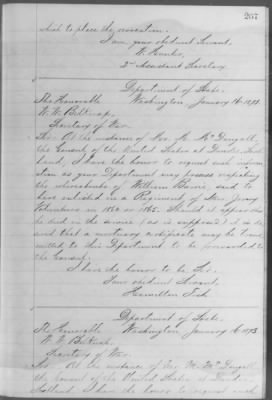 207
which to place the revocation.
I am, your obedient Servant,
W. Hunter,
2nd Assistant Secretary.
Department of State.
The Honorable Washington, January 16, 1873
W. W. Belknap,
Secretary of War.
Sir: At the instance of Mr. M. McDougall,
the Consul of the United States at Dundee, Scot-
land, I have the honor to request such inform-
ation as your Department may possess respecting
the whereabouts of William said to
have enlisted in a Regiment of New Jersey
Volunteers in 1864 or 1865. Should it appear that
he died in the service, as is supposed, it is de-
sired that a mortuary certificate may be trans-
mitted to this Department to be forwarded to
the Consul.
I have the honor to be, Sir,
Your obedient Servant,
Hamilton Fish.
Department of State.
The Honorable Washington, January 16, 1873
W. W. Belknap,
Secretary of War.
Sir: At the instance of Mr. M. McDougall,
Consul of the United States at Dundee,
Scotland, I have the honor to request such